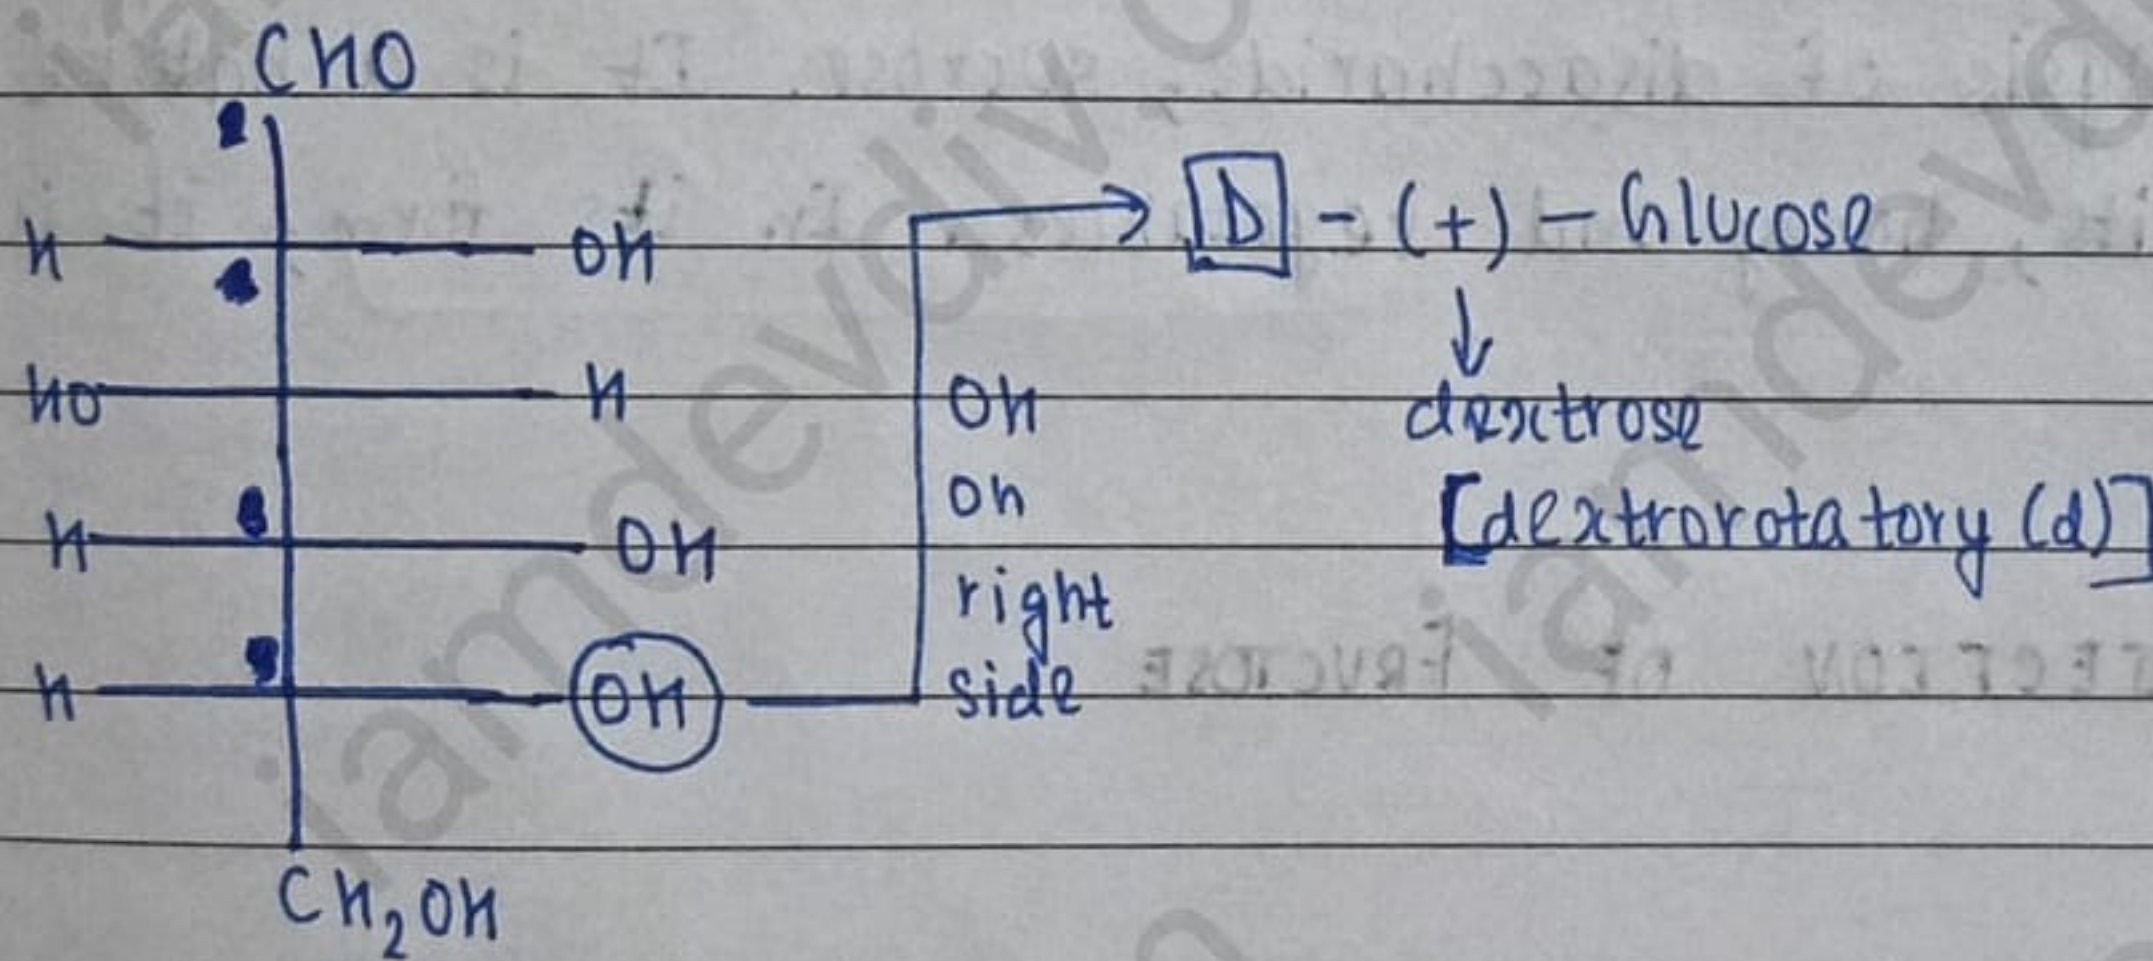 CHO
H OH
HO H
H OH
H OH
CH2OH
OH
on
right
side
D - (+) - Glucose
dextrose
[dextrorotatory (d)]
iamdevdiv
iamdevd